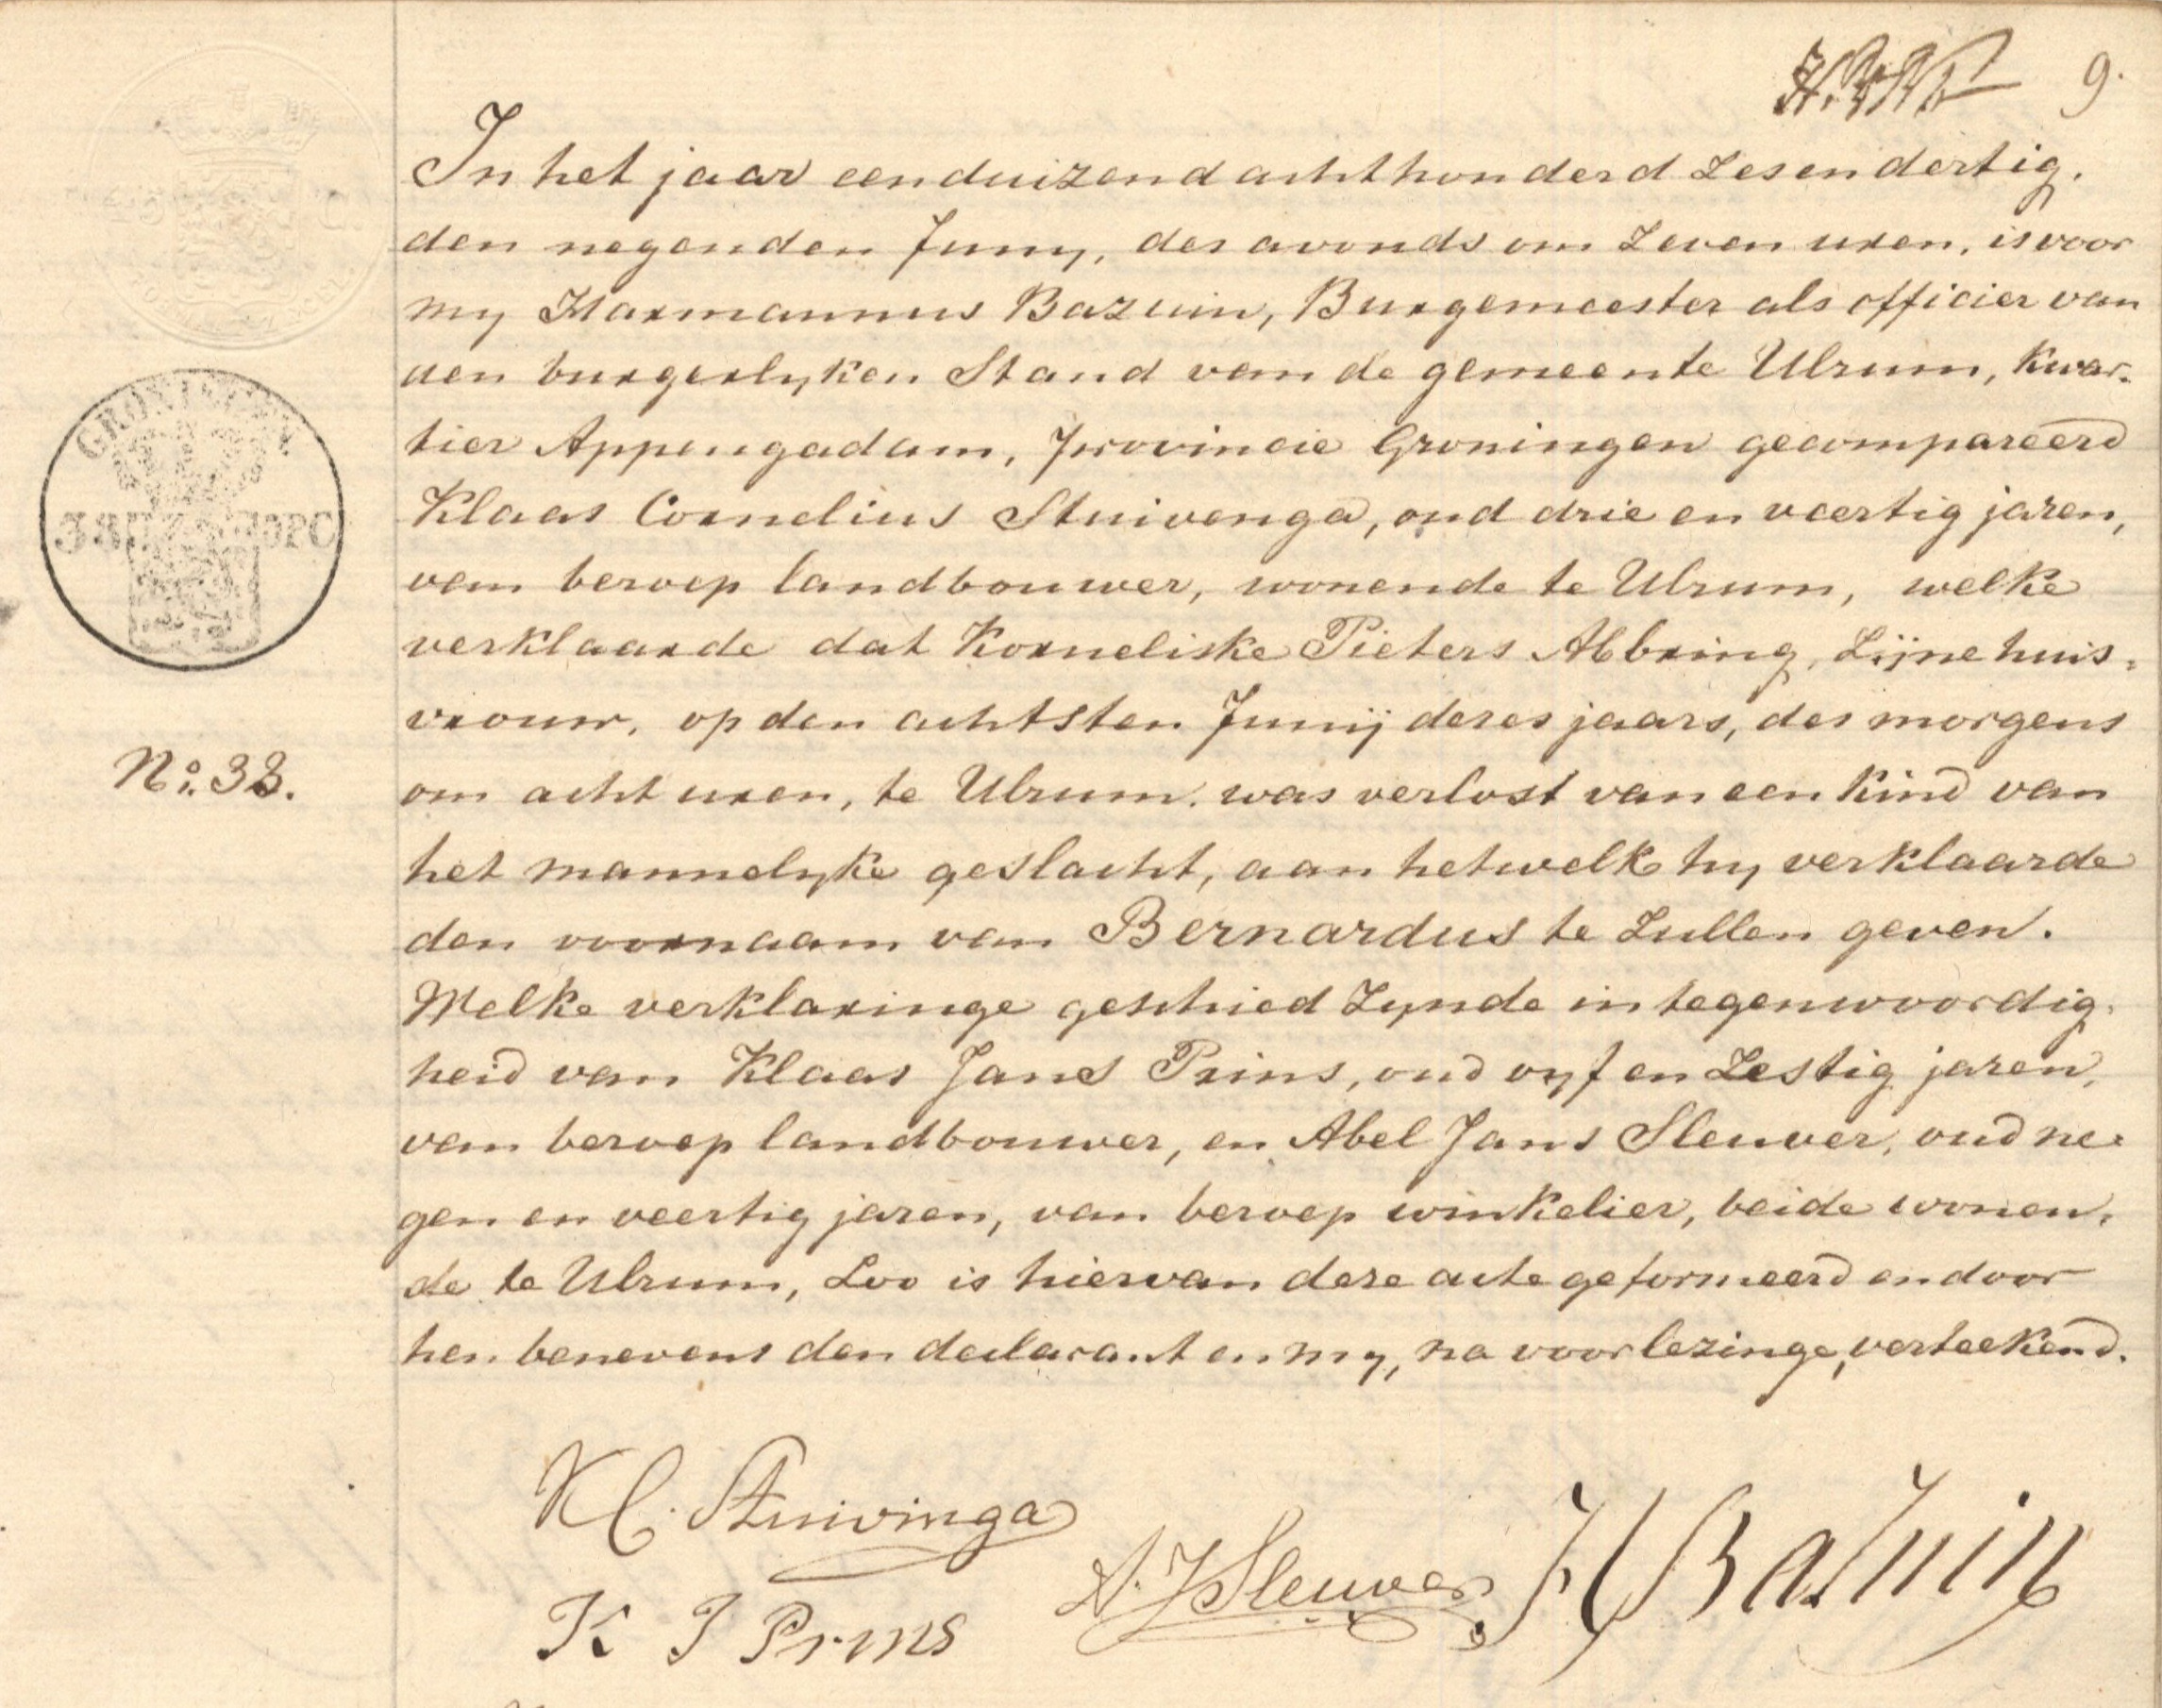 9.
In het jaar eenduizend achthonderd zesendertig.
den negenden Juny, des avonds om zeven uren, is voor
my Harmannus Bazuin, Burgemeester als officier van
den burgerlyken Stand van de gemeente Ulrum, kwar-
tier Appengadam, provincie Groningen gecompareerd
Klaas Cornelius Stuivenga, oud drie en veertig jaren,
van beroep landbouwer, wonende te Ulrum, welke
verklaarde dat Korneliske Pieters Abbring, zijne huis-
vrouw, op den achtsten Junij dezes jaars, des morgens
om acht uren, te Ulrum. was verlost van een kind van
het mannelyke geslacht, aan hetwelk hy verklaarde
den voornaam van Bernardus te zullen geven.
Welke verklaringe geschied zynde in tegenwoordig-
heid van Klaas Jans Prins, oud vyf en zestig jaren,
van beroep landbouwer, en Abel Jans Sleuver, oud ne-
gen en veertig jaren, van beroep winkelier, beide wonen-
de te Ulrum, zoo is hiervan deze acte geformeerd en door
hen benevens den declarant en my, na voorlezinge, verteekend.
GRONINGEN
No. 33.
K C. Stuivinga
A. J Sleuver
H Bazuin
K J Prins